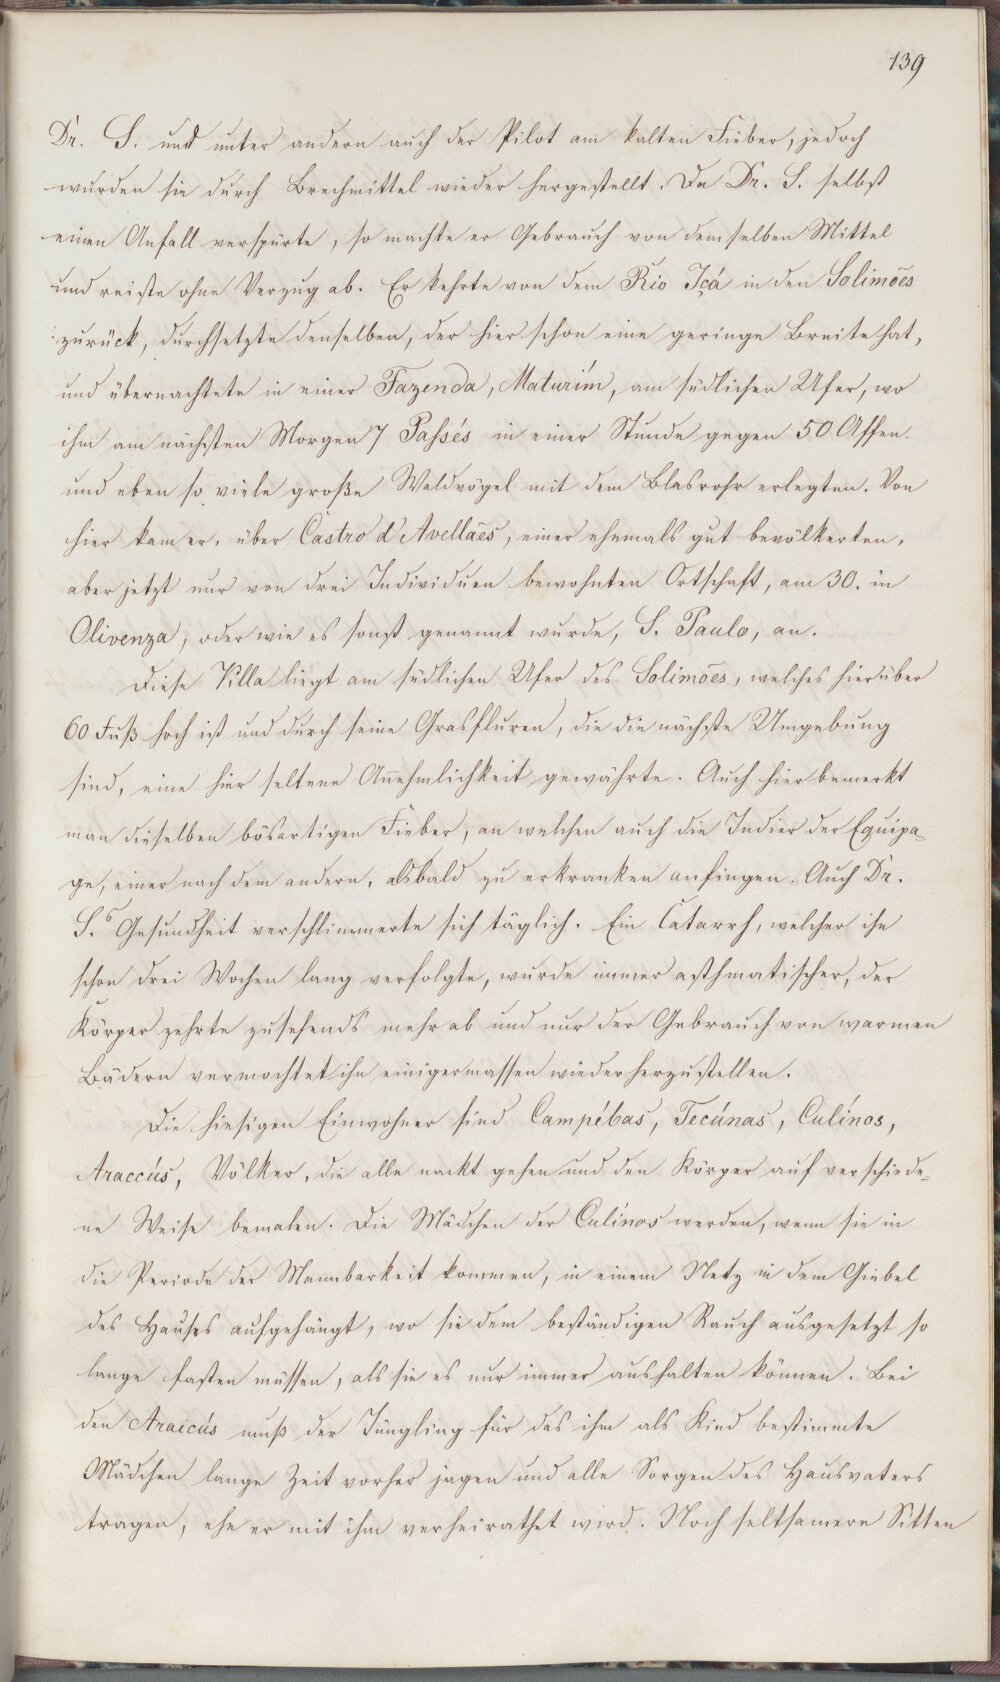 139
Dr. S. und unter andern auch der Pilot am kalten Fieber, jedoch
wurden sie durch Brechmittel wieder hergestellt. Da Dr. S. selbst
einen Anfall verspürte, so machte er Gebrauch von demselben Mittel
und reiste ohne Verzug ab. Er kehrte von dem Rio Içá in den Solimoẽs
zurück, durchsetzte denselben, der hier schon eine geringe Breite hat,
und übernachtete in einer Fazenda, Maturim, am südlichen Ufer, wo
ihm am nächsten Morgen 7 Passés in einer Stunde gegen 50 Affen
und eben so viele große Waldvögel mit dem Blasrohr erlegten. Von
hier kam er, über Castro d'Avellaẽs, einer ehemals gut bevölkerten,
aber jetzt nur von drei Individuen bewohnten Ortschaft, am 30. in
Olivenza, oder wie es sonst genannt wurde, S. Paulo, an.
Diese Villa liegt am südlichen Ufer des Solimoẽs, welches hier über
60 Fuß hoch ist und durch seine Grasfluren, die die nächste Umgebung
sind, eine hier seltene Annehmlichkeit gewährte. Auch hier bemerkt
man dieselben bösartigen Fieber, an welchen auch die Indier der Equipa-
ge, einer nach dem andern, alsbald zu erkranken anfingen. Auch Dr.
S.s Gesundheit verschlimmerte sich täglich. Ein Catarrh, welcher ihn
schon drei Wochen lang verfolgte, wurde immer asthmatischer, der
Körper zehrte zusehends mehr ab und nur der Gebrauch von warmen
Bädern vermochtet ihn einigermassen wiederherzustellen.
Die hiesigen Einwohner sind Campébas, Tecúnas, Culínos,
Araccús, Völker, die alle nackt gehen und den Körper auf verschiede-
ne Weise bemalen. Die Mädchen der Culínos werden, wenn sie in
die Periode der Mannbarkeit kommen, in einem Netz in dem Giebel
des Hauses aufgehängt, wo sie dem beständigen Rauch ausgesetzt so
lange fasten müssen, als sie es nur immer aushalten können. Bei
den Araicús muß der Jüngling für das ihm als Kind bestimmte
Mädchen lange Zeit vorher jagen und alle Sorgen des Hausvaters
tragen, ehe er mit ihm verheirathet wird. Noch seltsamere Sitten